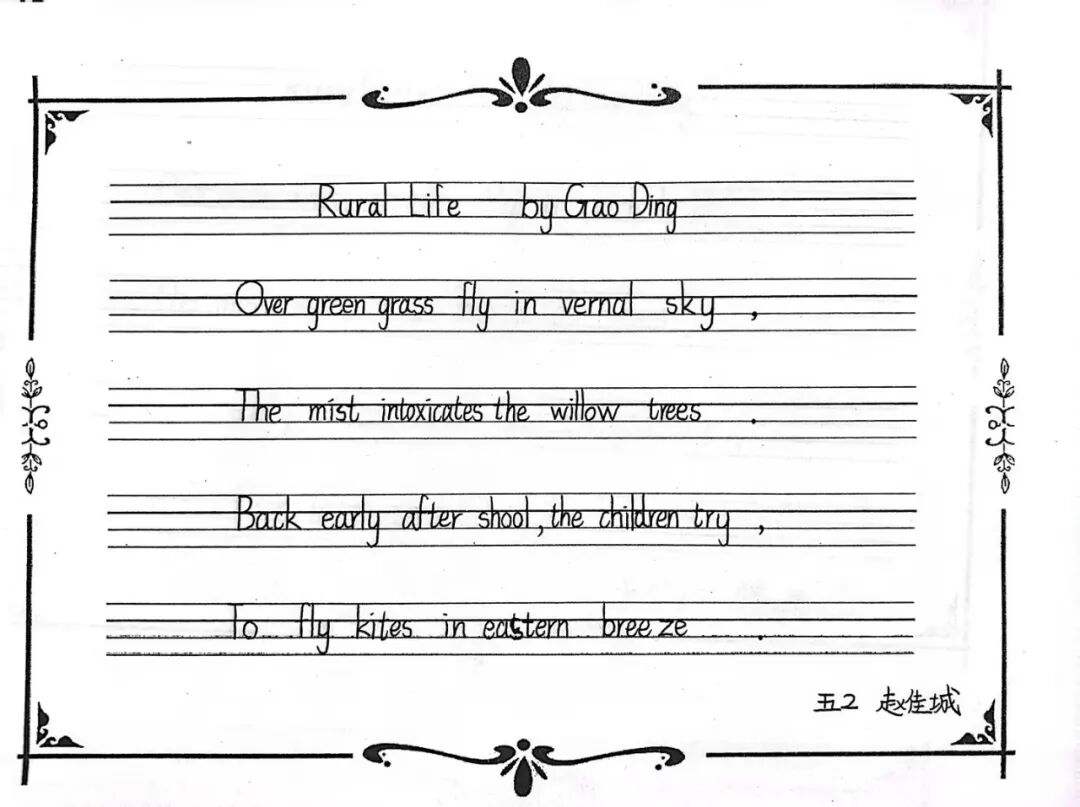 Rural Life by Gao Ding
Over green grass fly in vernal sky ,
The mist intoxicates the willow trees .
Back early after shool, the children try ,
To fly kites in eastern breeze .
五2 赵佳城